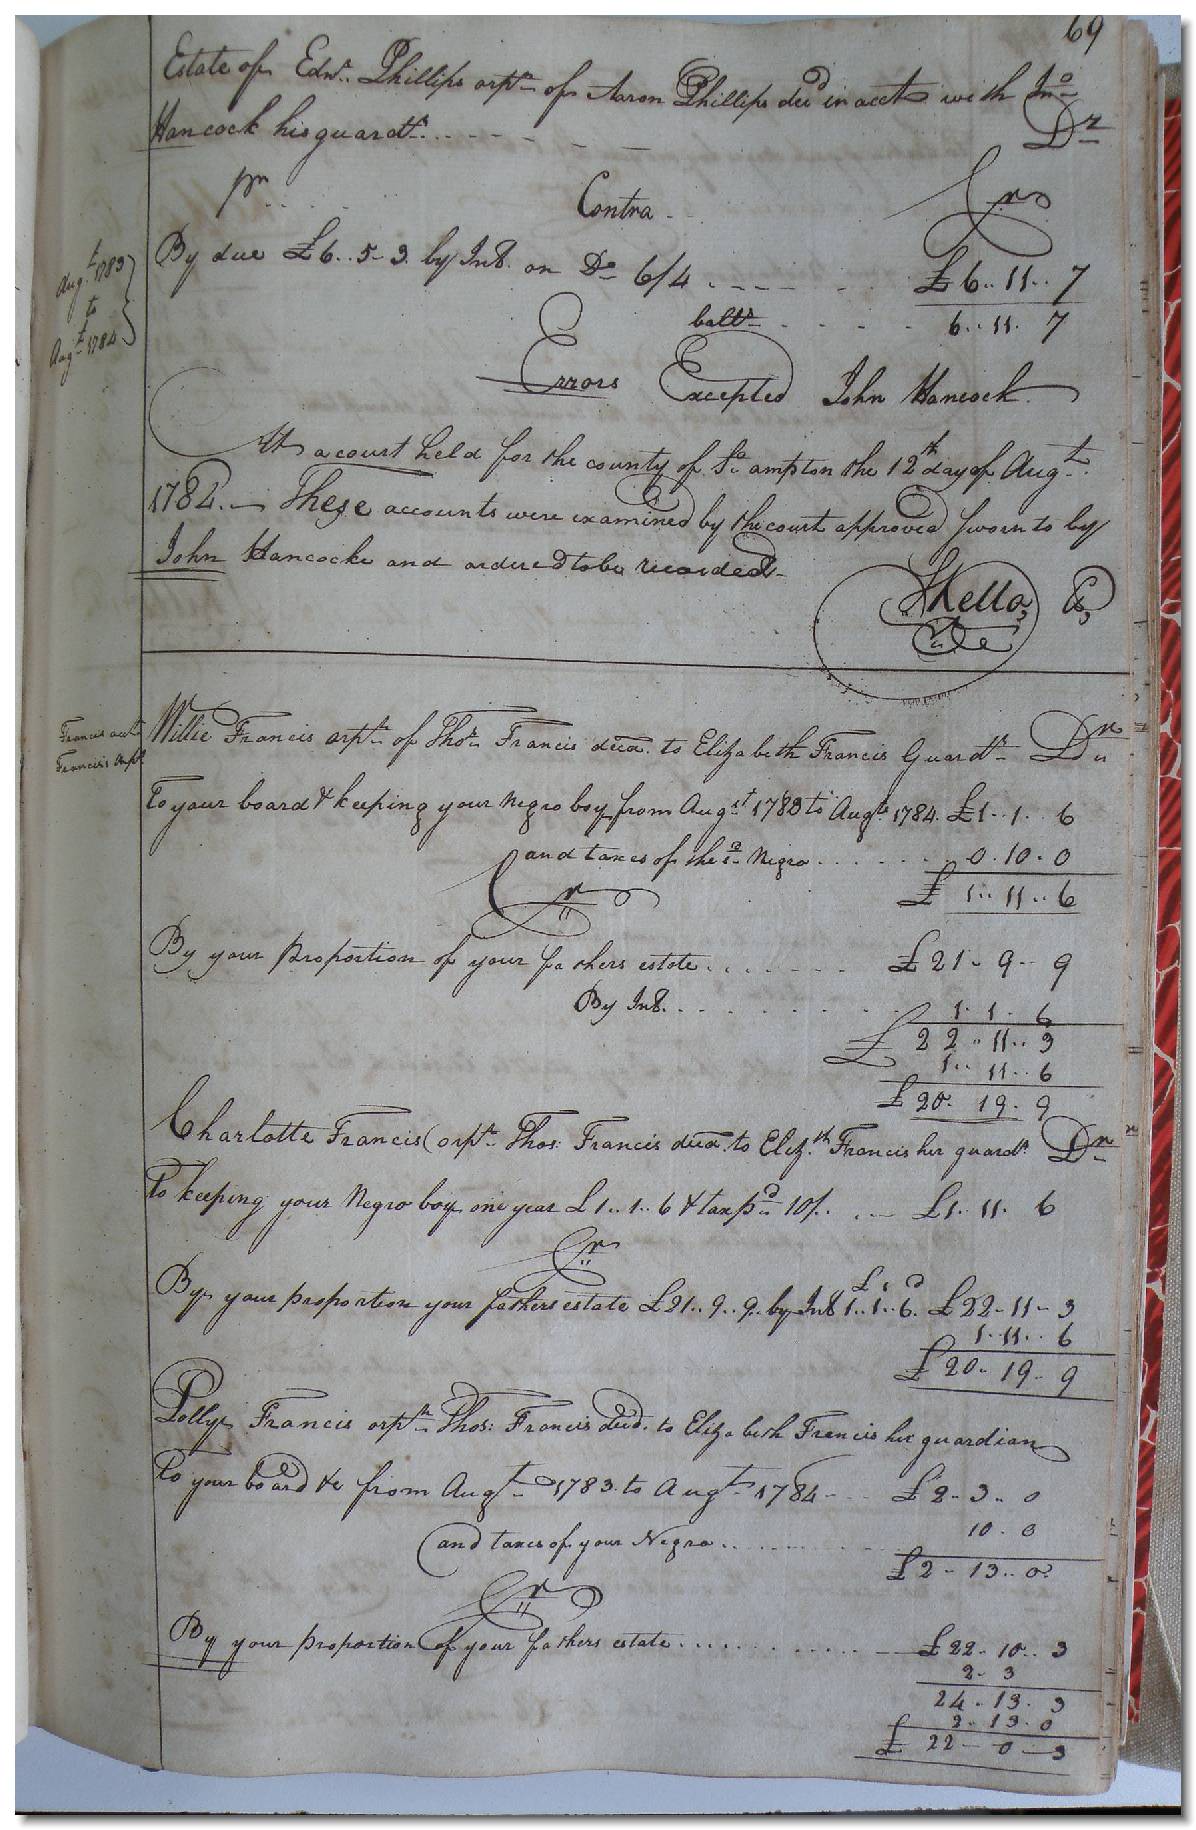 69
Estate of Edwd. Phillips orpn. of Aaron Phillips decd in acct with Jno
Hancock his guardn. Dr
pr Contra Cr
By due £6..5-3. by Int. on Do 6/4 £6..11..7
Augt. 1783
to
Augt. 1784
balle 6..11..7
Errors Excepted John Hancock
At a court held for the county of So ampton the 12th day of Augt.
1784. These accounts were examined by the court approved sworn to by
John Hancocke and ordered to be recorded
Kello Co
Francis acct
Francis's orpn.
Willie Francis orpn. of Thos. Francis decd. to Elizabeth Francis Guardn. Dr
To your board & keeping your Negro boy from Augst 1783 to Augt 1784. £1..1..6
and taxes of the sd Negro 0.10.0
£1..11..6
Cr
By your proportion of your fathers estate £21-9-9
By Int. 1.1.6
£22..11..3
1..11..6
£20.19.9
Charlotte Francis orpn. Thos: Francis decd. to Elizth Francis her guardn. Dr
To keeping your Negro boy one year £1..1..6 & tax pd 10/. £1.11.6
Cr
By your proportion your fathers estate £21..9..9. by Int £1..1..6. £22-11-3
1.11..6
£20.19-9
Polly Francis orpn. Thos: Francis decd. to Elizabeth Francis her guardian
To your board &c from Augt. 1783 to Augt. 1784 £2-3..0
and taxes of your Negro 10.0
£2-13..0
Cr
By your proportion of your fathers estate £22-10..3
2-3
24-13.3
2-13.0
£22-0-3